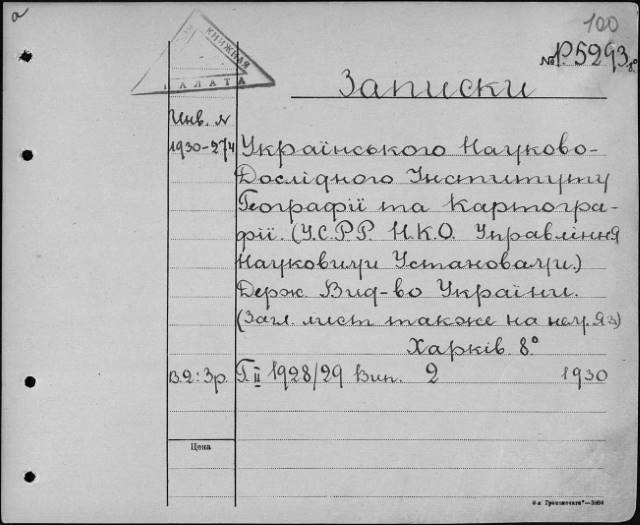 a
100
КНИЖНАЯ
ПАЛАТА
№ P.5293 8°
Записки
Инв. N
1930-274 Українського Науково-
Дослідного Інституту
Географії та Картогра-
фії. (У.С.Р.Р. Н.К.О. Управління
Науковими Установами.)
Держ. Вид-во України.
(Загл. лист також на нем. яз)
Харків. 8°
В.2: 3р. Т II 1928/29 Вип. 2 1930
Цена